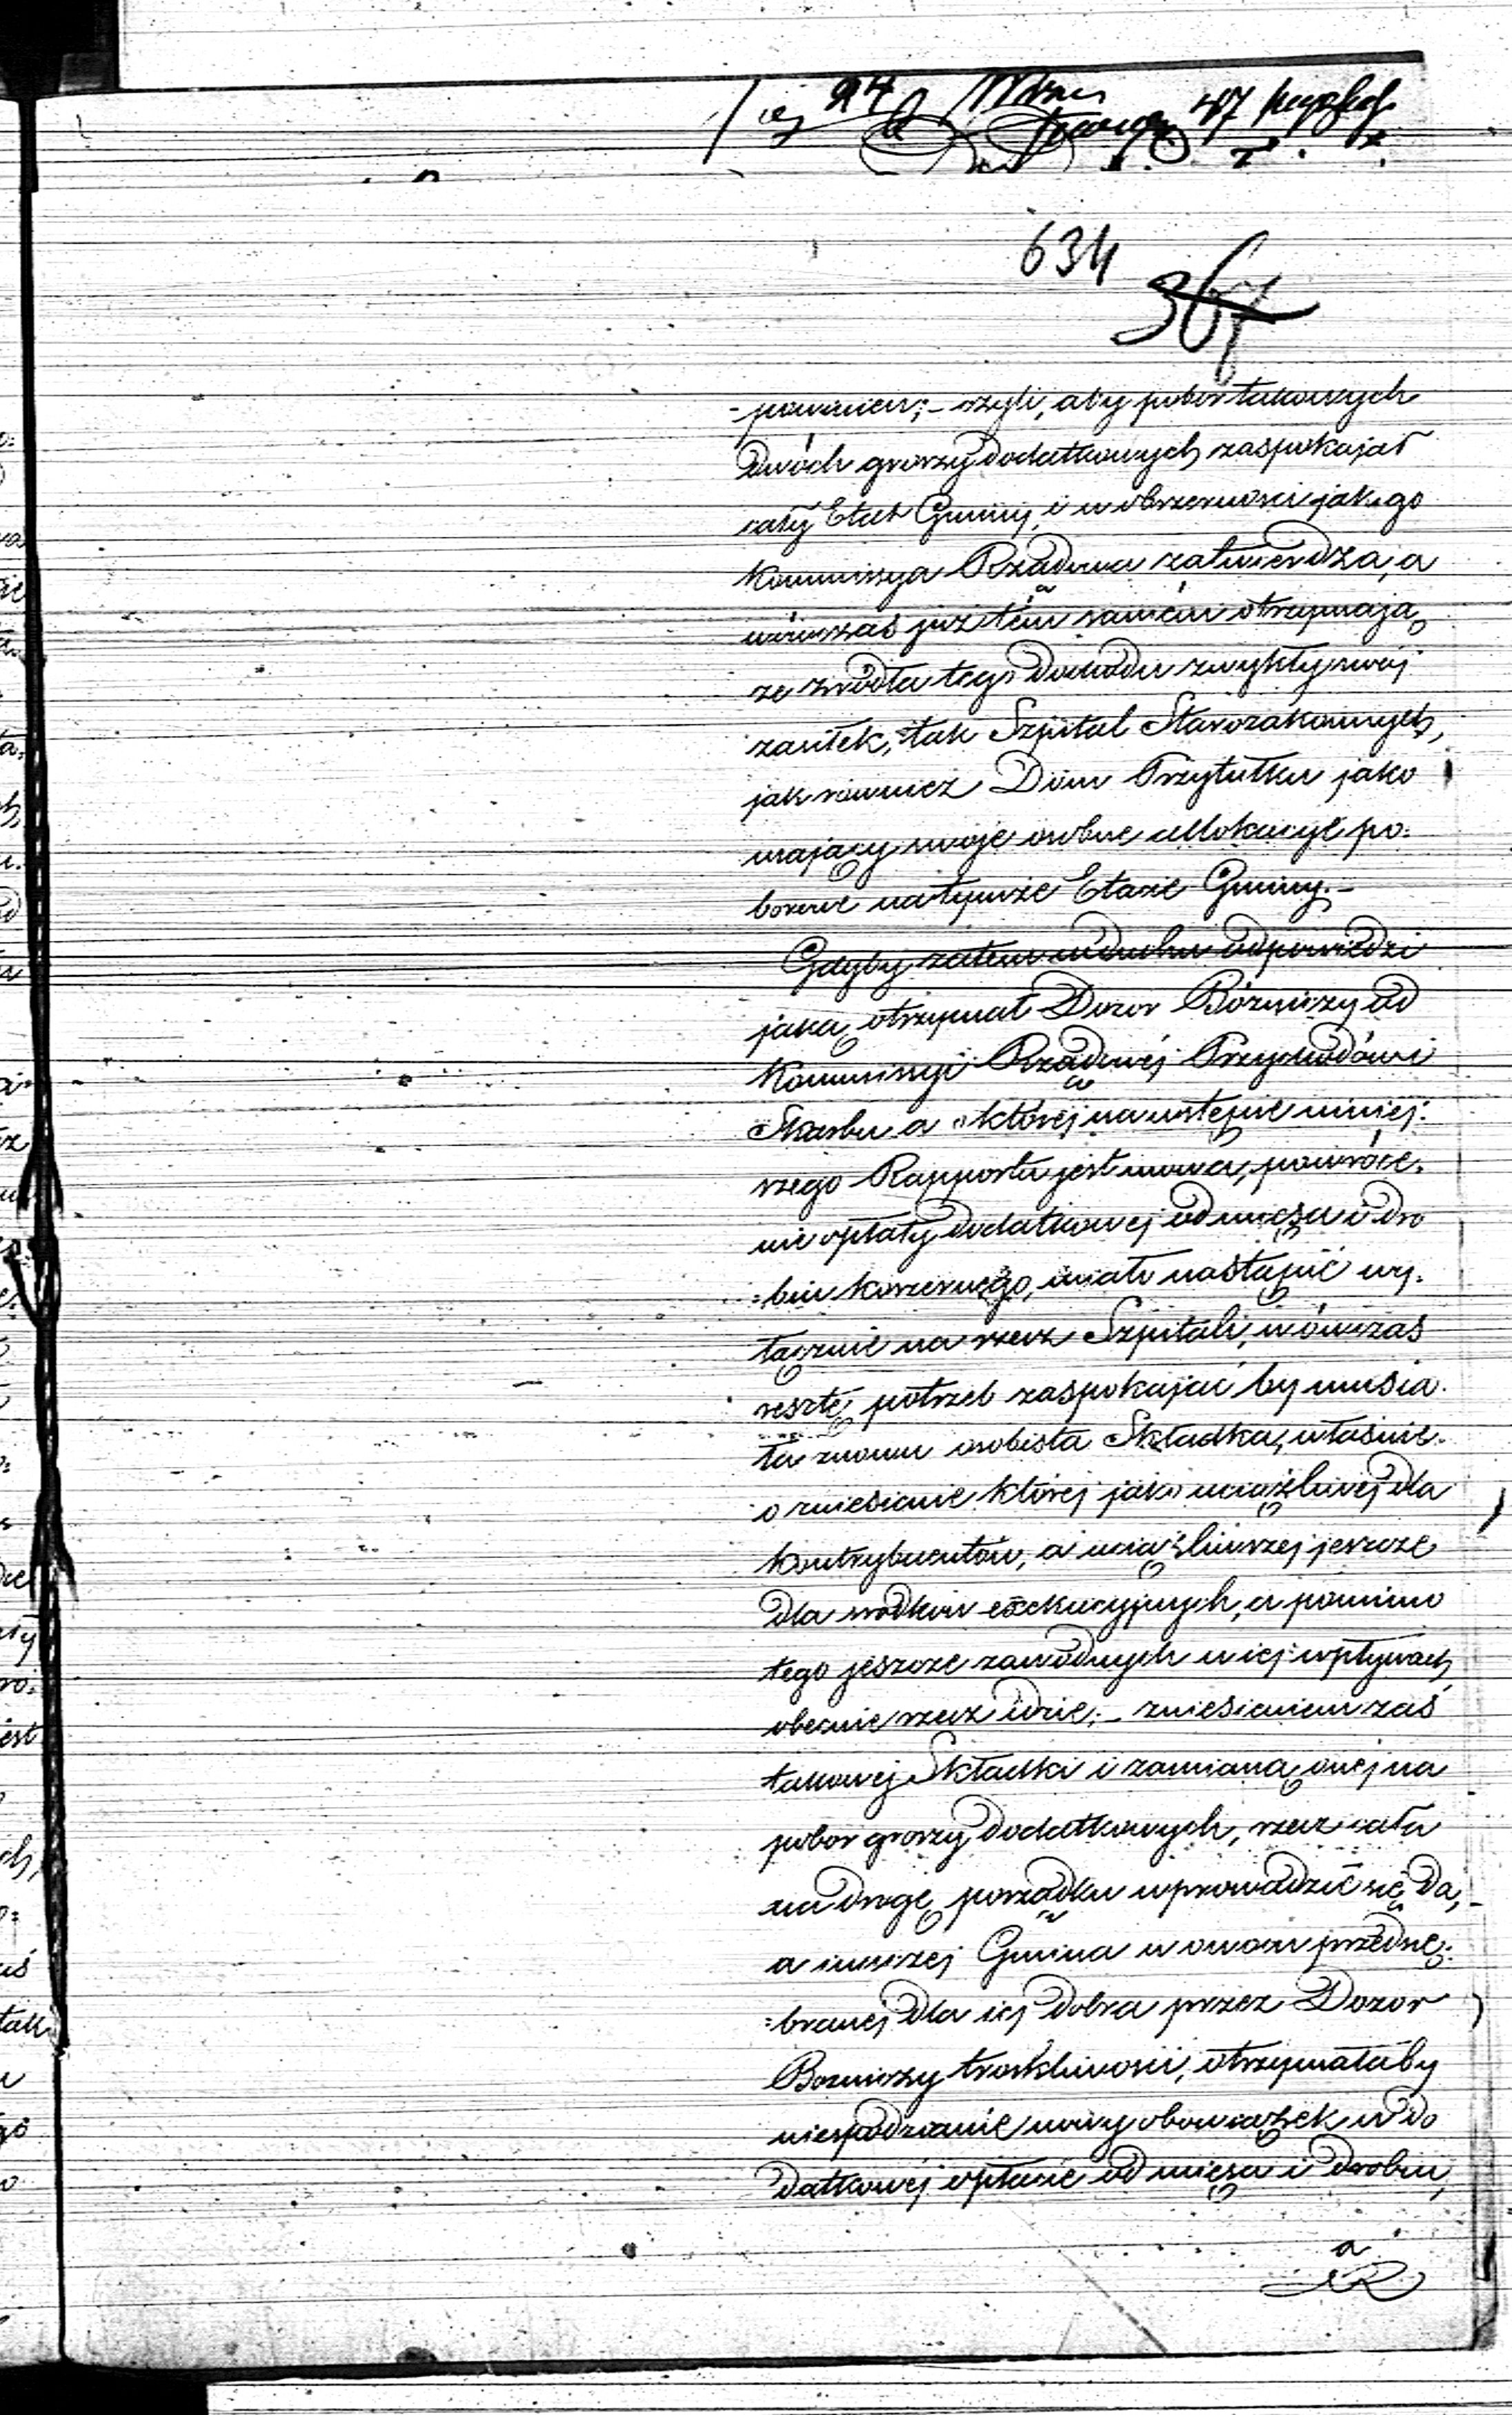 24
47
634
367
-powinien;- czyli, aby pobór takowych
dwóch groszy dodatkowych zaspokajał
cały Etat Gminy, i w obszerności jak go
Kommissya Rządowa zatwierdza, a
wówczas już tém samém otrzymają
ze źródła tego dochodu zwykły swój
zasiłek, tak Szpital Starozakonnych,
jak również Dom Przytułku jako
mający swoje osobne allokacye po=
borowe na tymże Etacie Gminy.-
Gdyby zatem w duchu odpowiedzi
jaką otrzymał Dozor Bóżniczy od
Kommissyi Rządowéj Przychodów i
Skarbu a o któréj na wstępie niniej=
szego Rapportu jest mowa, powróce=
nie opłaty dodatkowej od mięsa i dro
=biu koszernego, miało nastąpić wy=
łącznie na rzecz Szpitali, wówczas
resztę potrzeb zaspokajać by musia=
ła znowu osobista Składka, właśnie
o zniesienie której jako uciążliwej dla
kontrybuentów, a uciążliwszej jeszcze
dla środków exekucyjnych, a pomimo
tego jeszcze zawodnych w jej wpływach
obecnie rzecz idzie;- zniesieniem zaś
takowej Składki i zamianą onej na
pobór groszy dodatkowych, rzecz cała
na drogę porządku wprowadzić się da,-
a inaczej Gmina w owocu przedsię=
=branej dla jej dobra przez Dozor
Bozniczy troskliwości, otrzymałaby
niespodzianie nowy obowiązek w do
datkowéj opłacie od mięsa i drobiu,
a